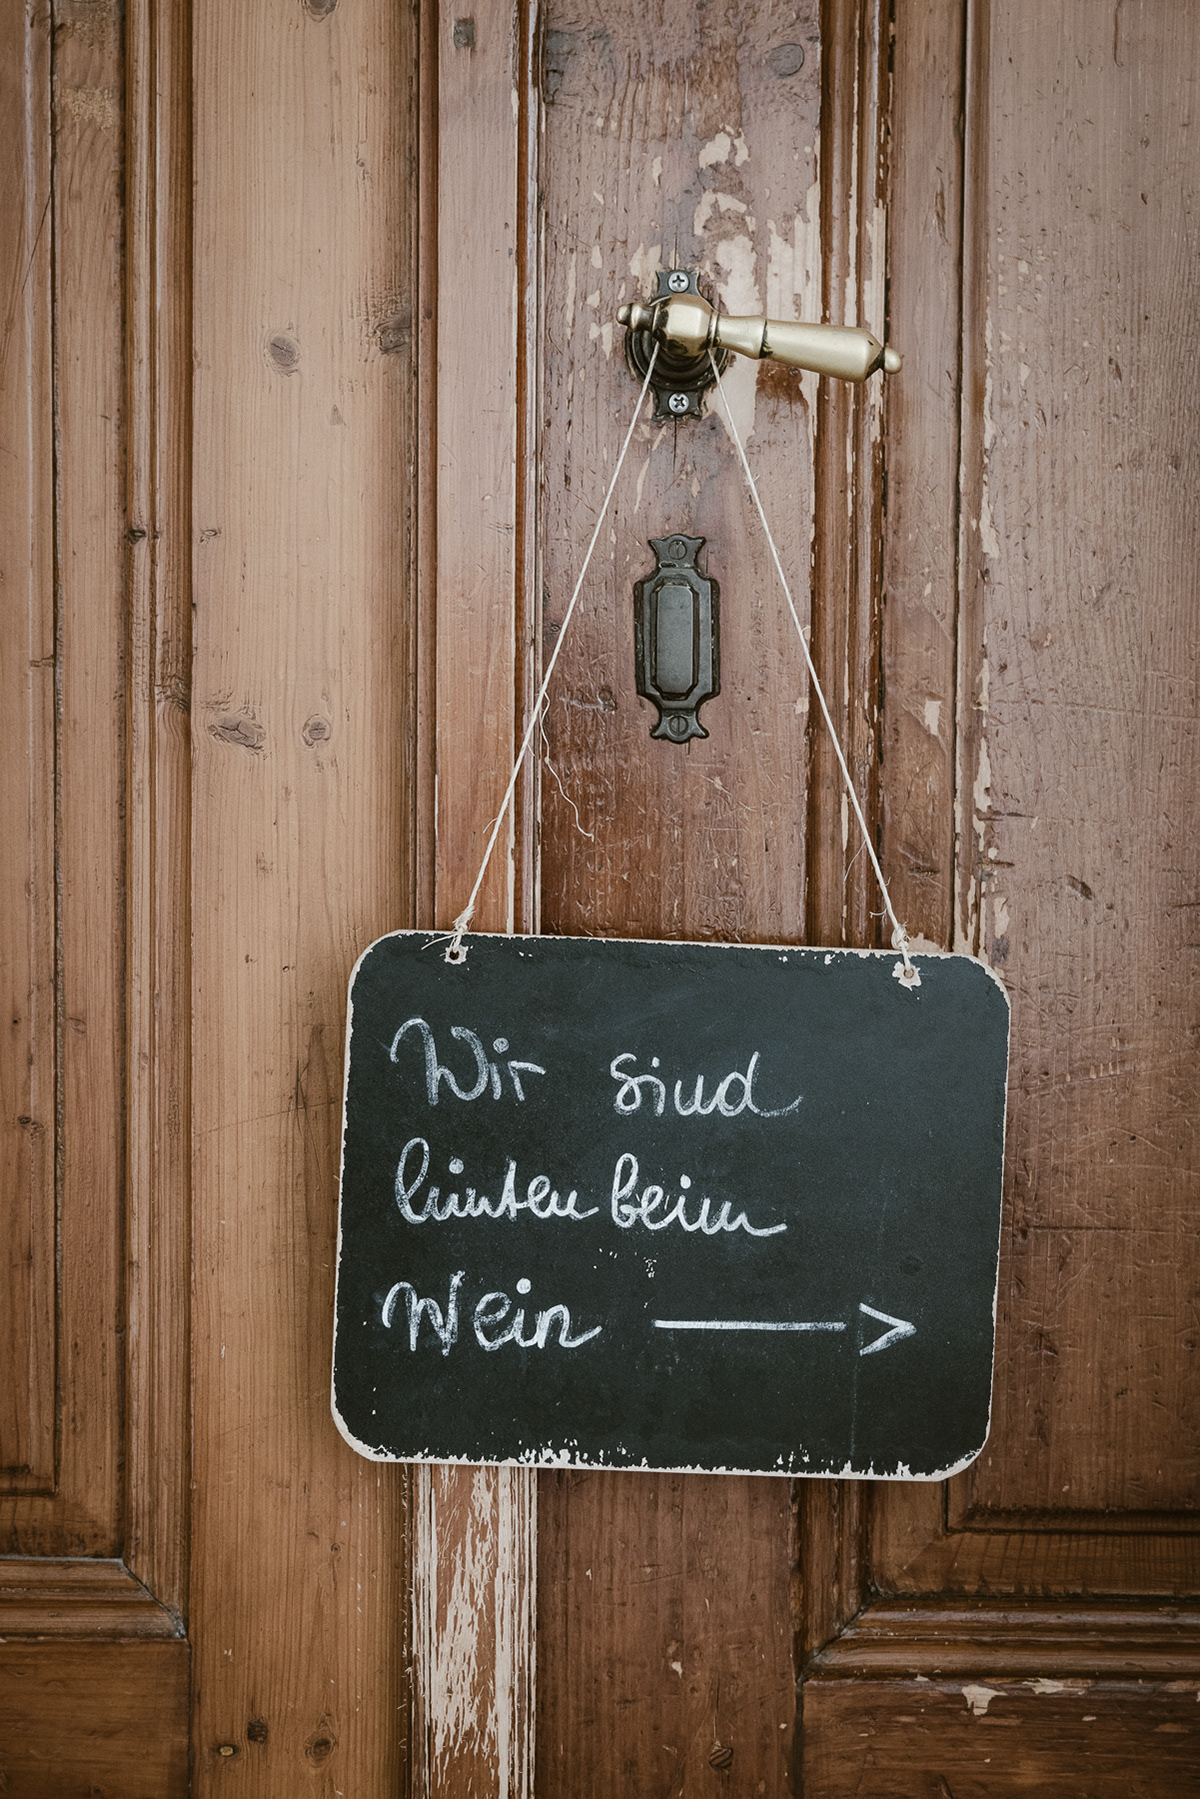 Wir sind
hinten beim
Wein →